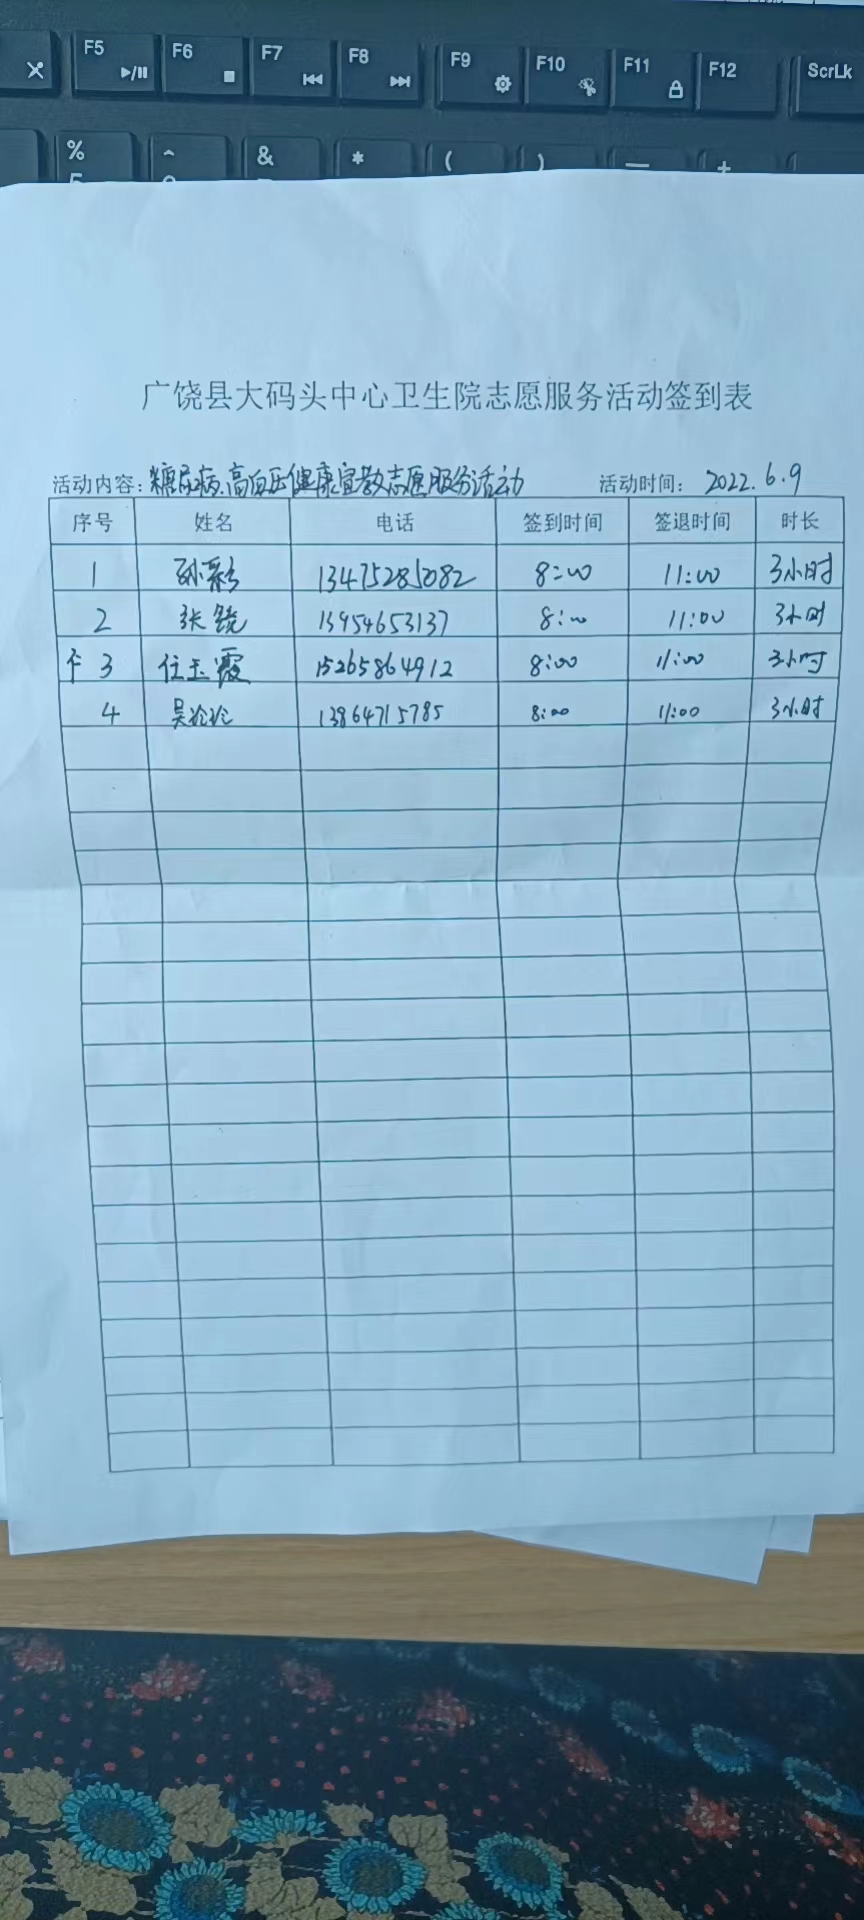 F5 F6 F7 F8 F9 F10 F11 F12 ScrLk
% ^ & * ( ) — +
广饶县大码头中心卫生院志愿服务活动签到表
活动内容：糖尿病、高血压健康宣教志愿服务活动 活动时间：2022.6.9
序号 姓名 电话 签到时间 签退时间 时长
1 孙彩 13475285082 8:00 11:00 3小时
2 张 13954653137 8:00 11:00 3小时
3 任玉霞 15265864912 8:00 11:00 3小时
4 吴玲玲 13864715785 8:00 11:00 3小时